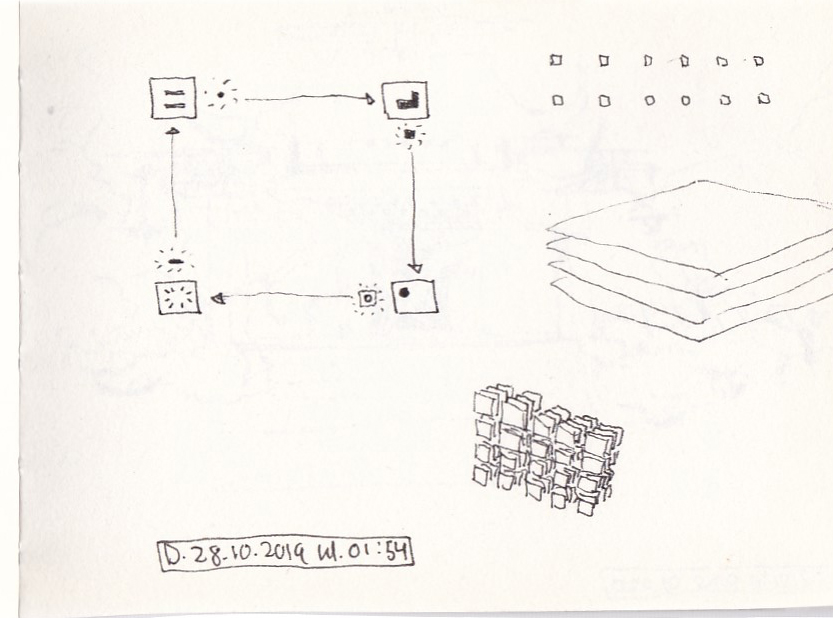 D. 28.10.2019 kl. 01:54